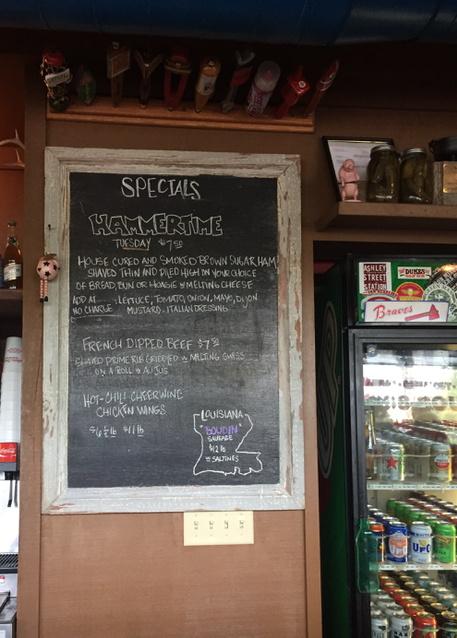 SPECIALS
HAMMERTIME
TUESDAY $7.50
HOUSE CURED AND SMOKED BROWN SUGAR HAM
SHAVED THIN AND PILED HIGH ON YOUR CHOICE
OF BREAD, BUN OR HOAGIE W MELTING CHEESE
ADD AT... : LETTUCE, TOMATO, ONION, MAYO, DIJON
NO CHARGE MUSTARD, ITALIAN DRESSING
FRENCH DIPPED BEEF $7.50
SHAVED PRIME RIB GRIDDLED W MELTING SWISS
ON A ROLL W AU JUS
HOT-CHILI CHEERWINE
CHICKEN WINGS
$6 ½ lb $11 lb
LOUISIANA
"BOUDIN"
SAUSAGE
$12 lb
W SALTINES
ASHLEY
STREET
STATION
DUKES
Braves
UFO